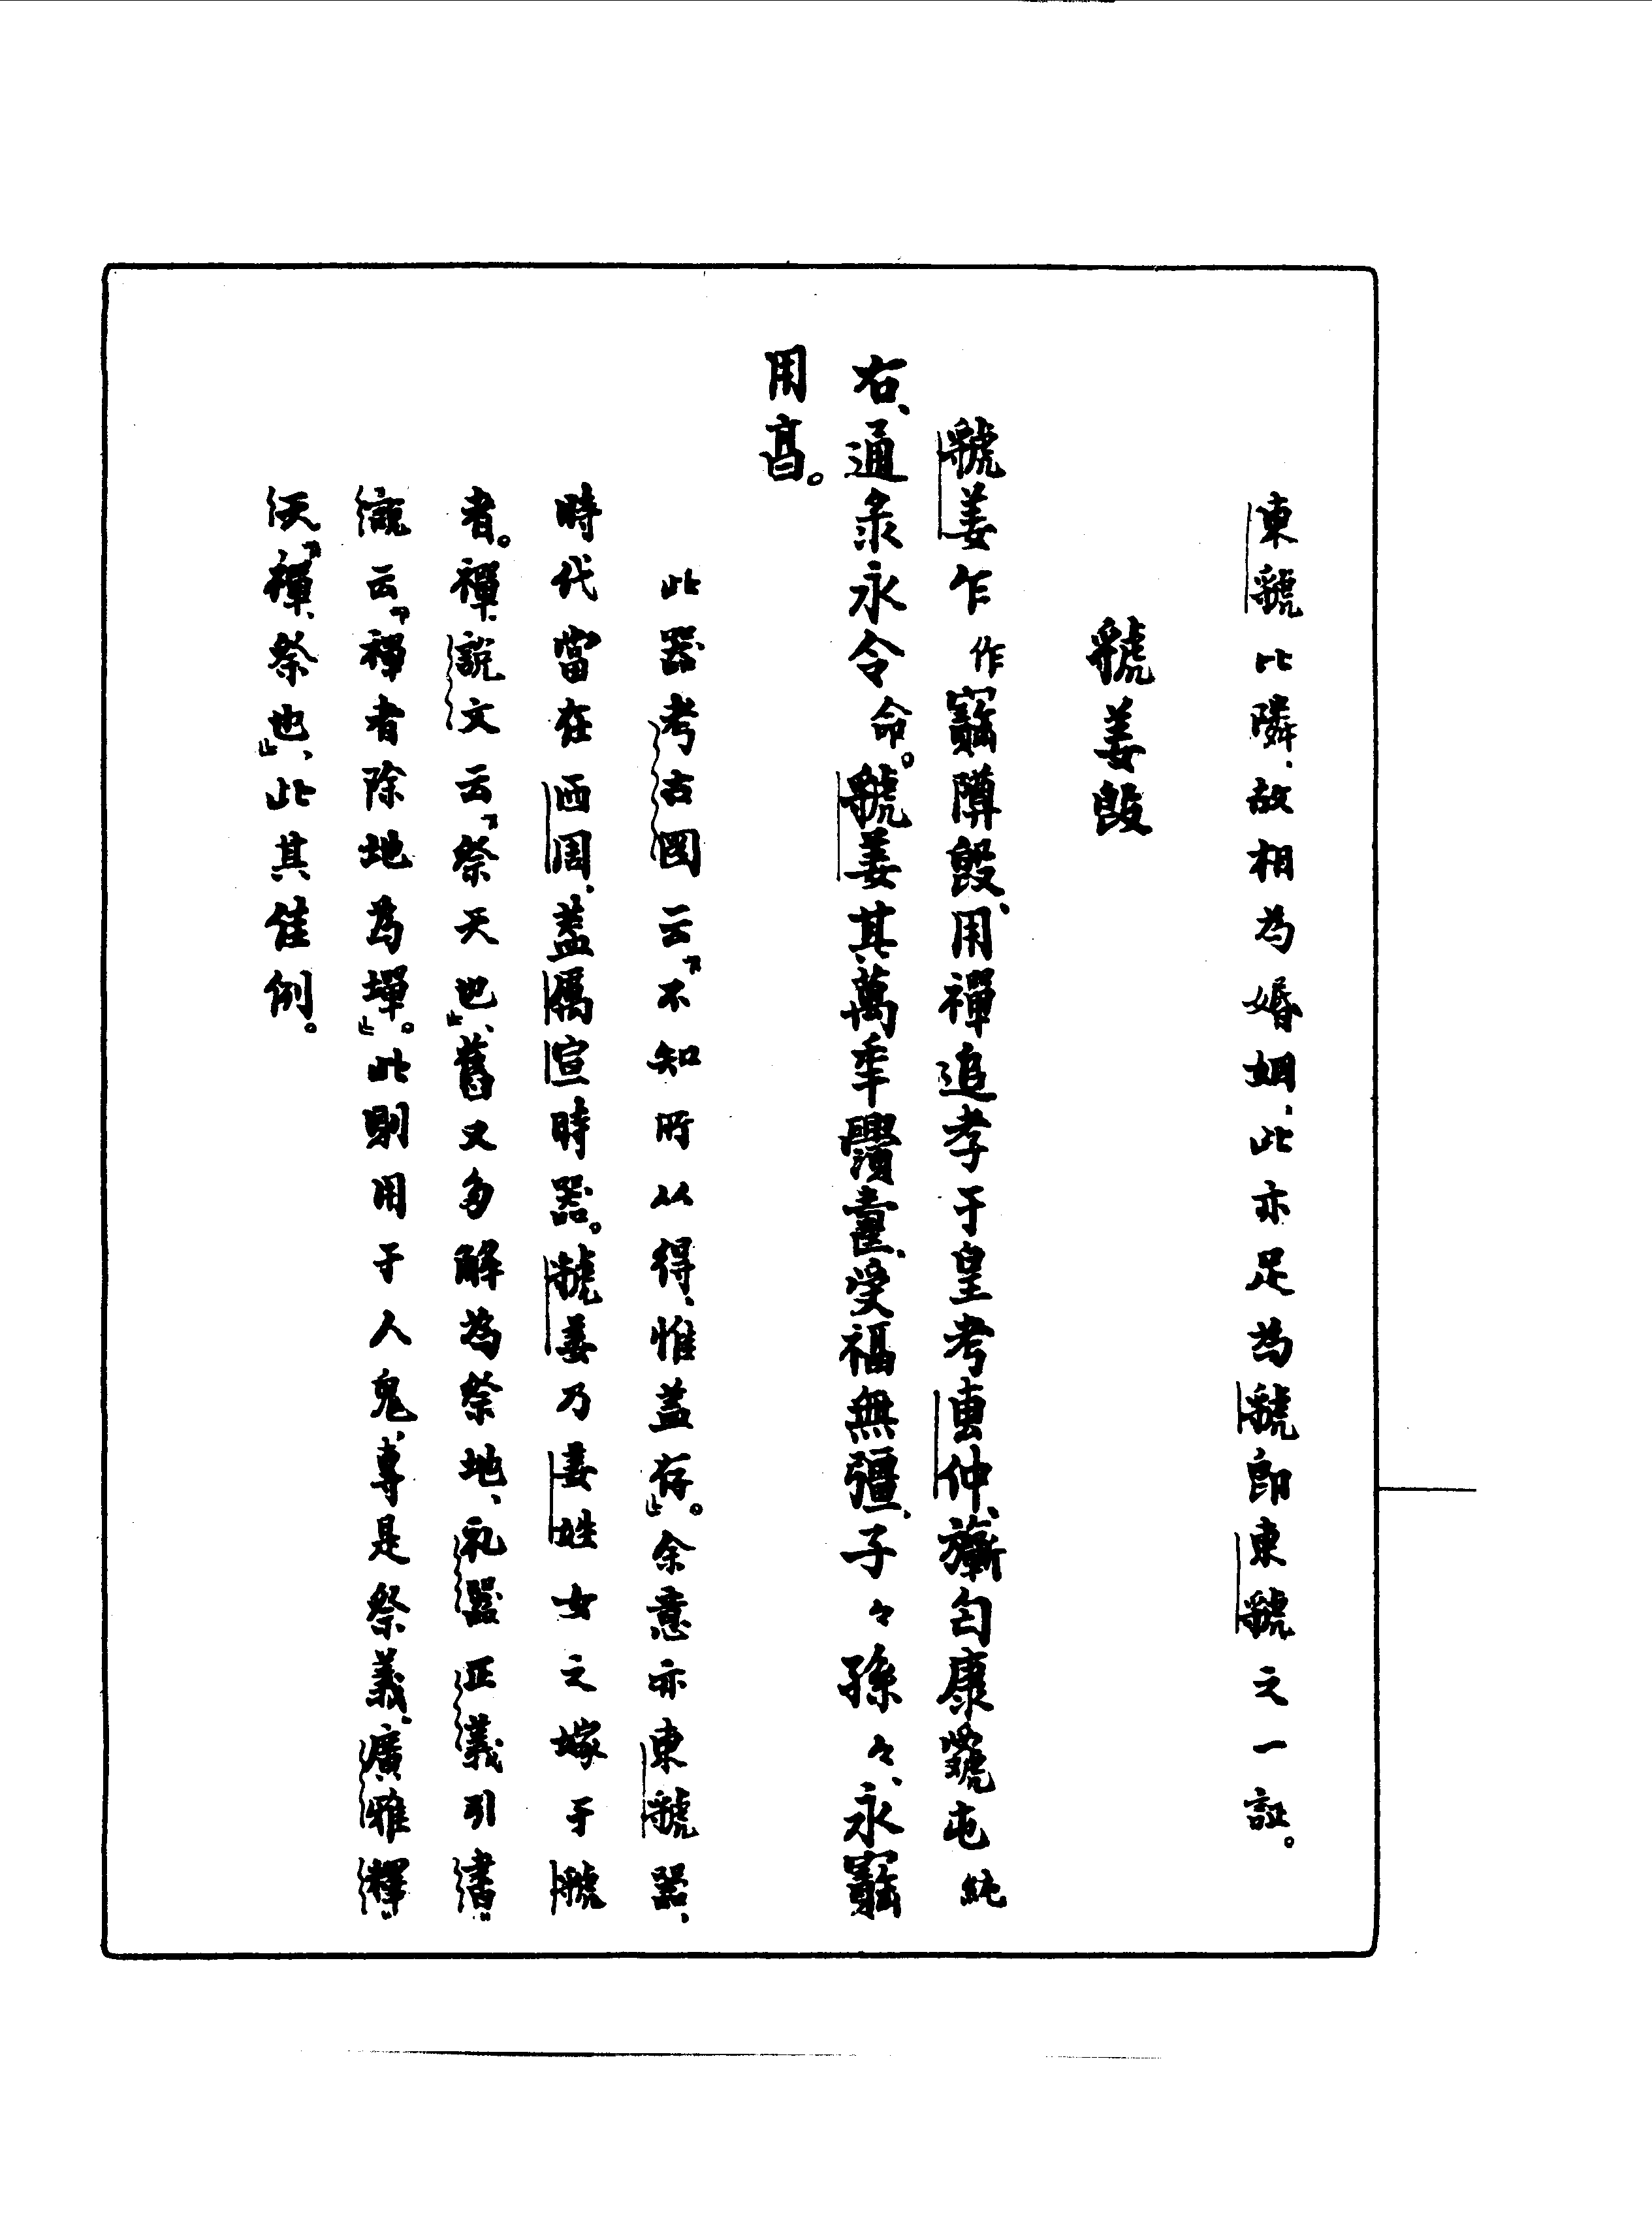 東虢比隣、故相為婚姻、此亦足為虢即東虢之一証。
虢姜𣪘
虢姜乍作寶𨻰𣪘、用禪追孝于皇考叀仲、𣄨匄康屯純
右、通彔永令命。虢姜其萬年眉壽、受福無彊、子々孫々、永寶
用亯。
此器考古圖云『不知所从得、惟蓋存』。余意亦東虢器、
時代當在西周、蓋厲宣時器。虢姜乃姜姓女之嫁于虢
者。禪、說文云『祭天也』、舊又多解為祭地、礼器正義引書
說云『禪者除地為墠』。此則用于人鬼、專是祭義、廣雅釋
天『禪、祭也』、此其佳例。